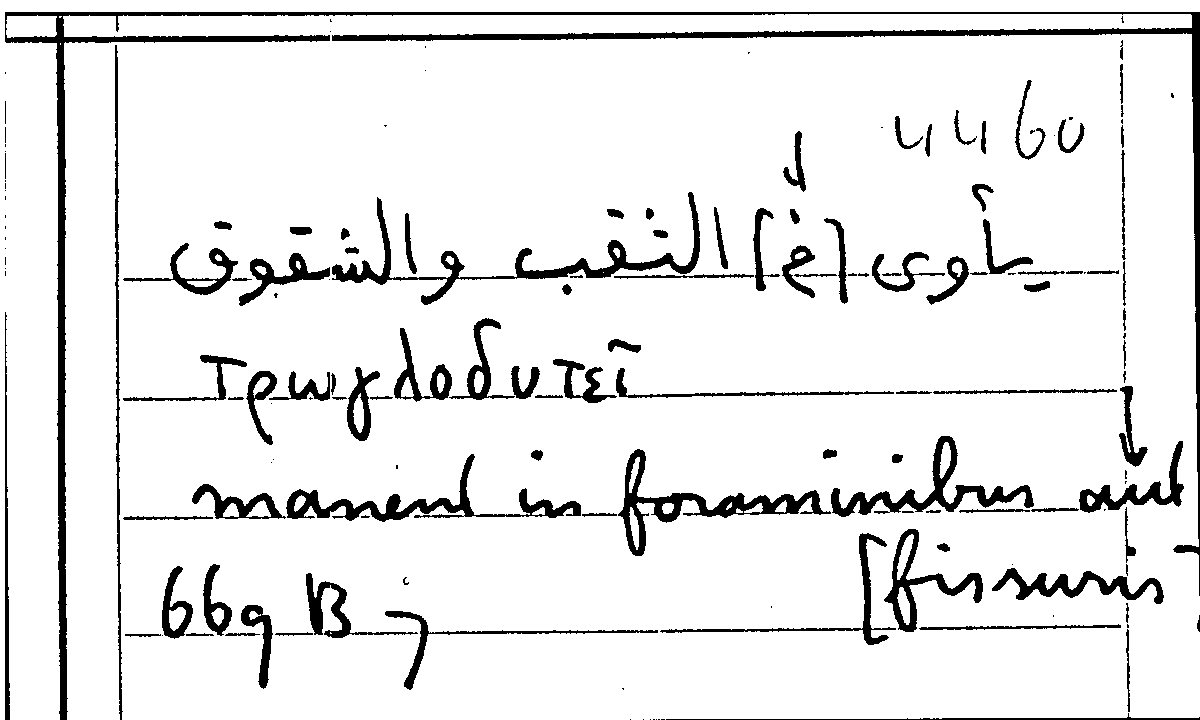 4460
يأوى [في] الثقب والشقوق
τρωγλοδυτεῖ
manent in foraminibus aut
[fissuris]
669 B 7